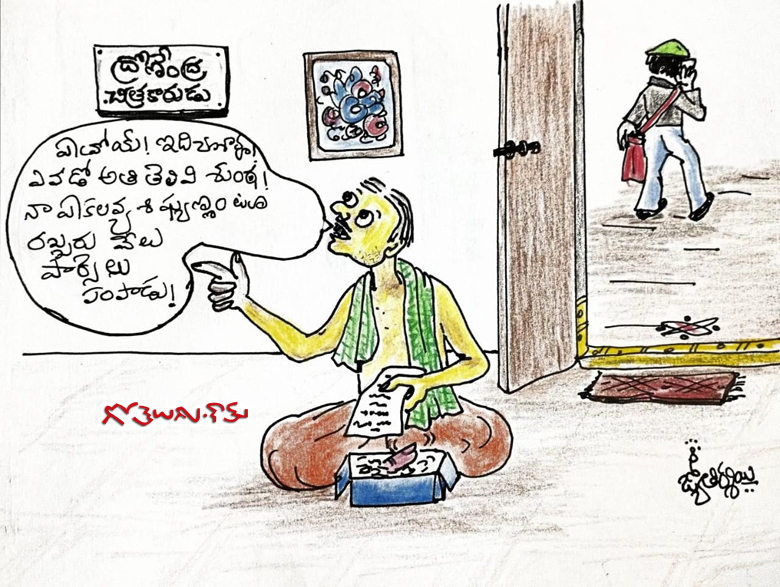 ద్రోణేంద్ర
చిత్రకారుడు
ఏమోయ్! ఇది
ఎవడో అతి తెలివి శుంఠ!
నా ఏకలవ్య శిష్యుణ్ణం టూ
రబ్బరు వేలు
పార్సెలు
పంపాడు!
గోత్రెలుగు.కామ్